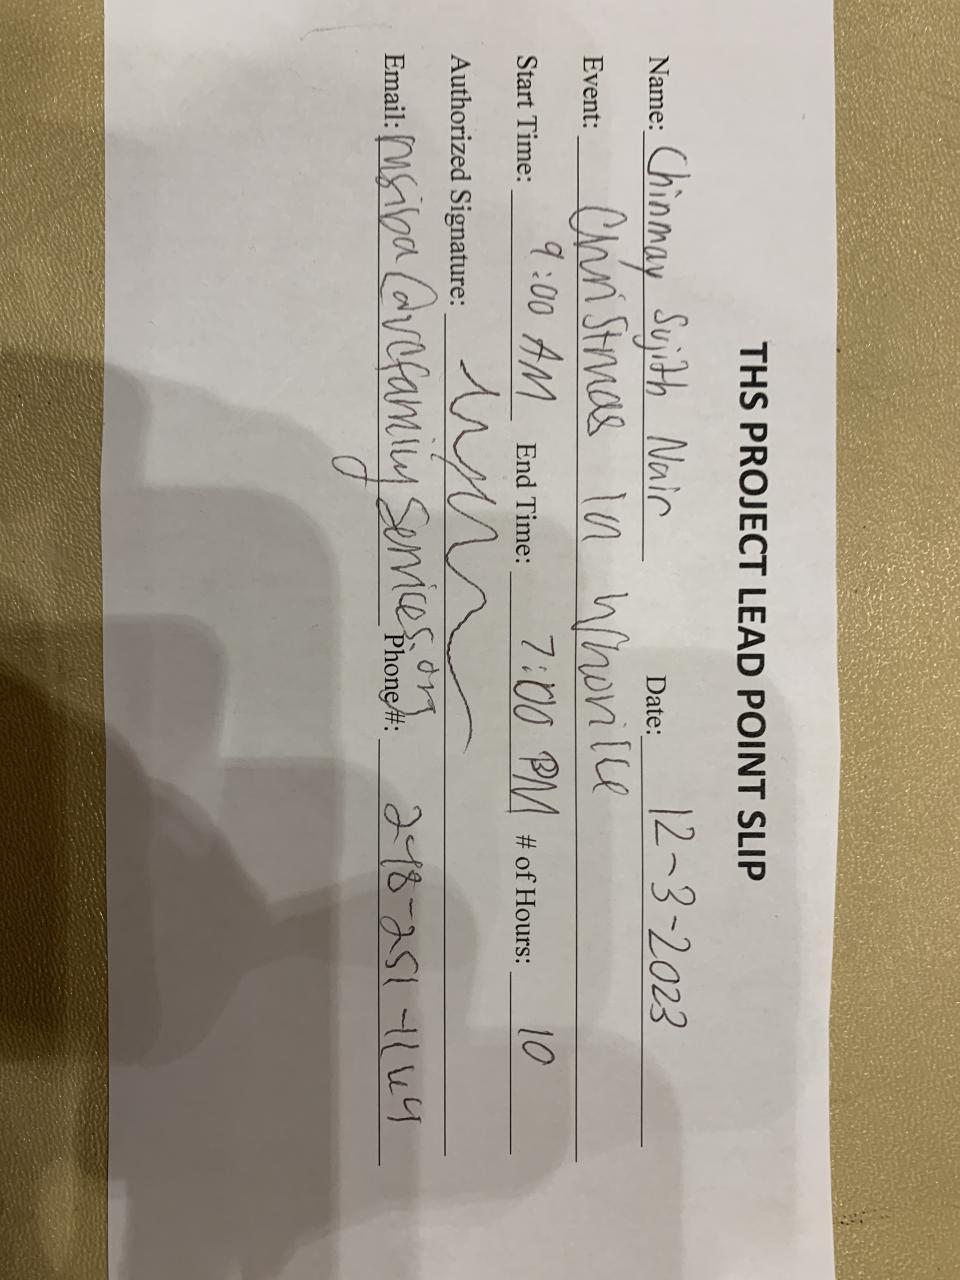 THS PROJECT LEAD POINT SLIP
Name: Chinmay Sujith Nair Date: 12-3-2023
Event: Christmas In Whoville
Start Time: 9:00 AM End Time: 7:00 PM # of Hours: 10
Authorized Signature:
Email: Phone#: